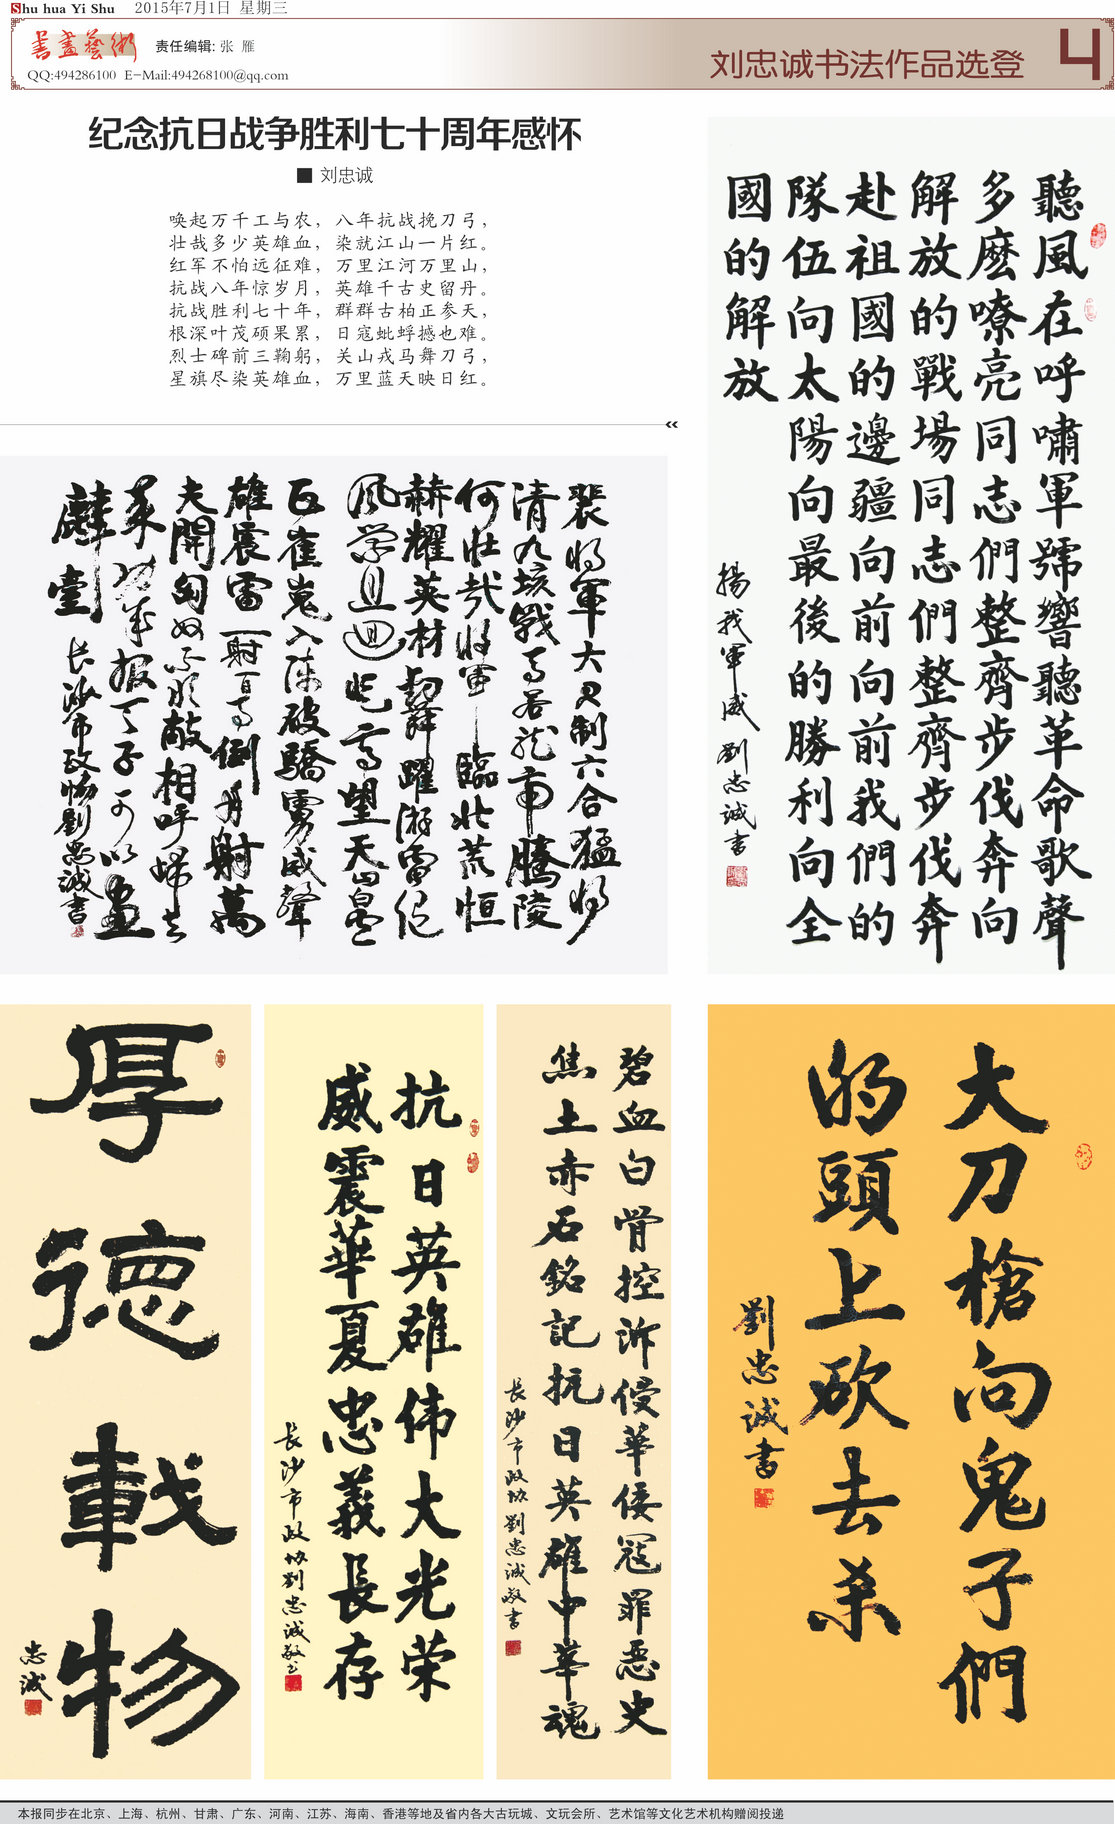 Shu hua Yi Shu 2015年7月1日 星期三
书画艺术 责任编辑: 张 雁
QQ:494286100 E-Mail:494268100@qq.com
刘忠诚书法作品选登 4
纪念抗日战争胜利七十周年感怀
■ 刘忠诚
唤起万千工与农，八年抗战挽刀弓，
壮哉多少英雄血，染就江山一片红。
红军不怕远征难，万里江河万里山，
抗战八年惊岁月，英雄千古史留丹。
抗战胜利七十年，群群古柏正参天，
根深叶茂硕果累，日寇蚍蜉撼也难。
烈士碑前三鞠躬，关山戎马舞刀弓，
星旗尽染英雄血，万里蓝天映日红。
聽風在呼嘯軍號響聽革命歌聲
多麽嘹亮同志們整齊步伐奔向
解放的戰場同志們整齊步伐奔
赴祖國的邊疆向前向前我們的
隊伍向太陽向最後的勝利向全
國的解放
揚我軍威 劉忠誠書
裴將軍大君制六合猛將
清九垓戰馬若龍虎騰陵
何壯哉將軍臨北荒恒
赫耀英材劍舞躍游電隨
風縈且迴登高望天山白雲
正崔嵬入陣破驕虜威聲
雄震雷一射百馬倒再射萬
夫開匈奴不敢敵相呼歸去
來功成報天子可以畫
麟臺 長沙市政協劉忠誠書
厚德載物
忠誠
抗日英雄伟大光荣
威震華夏忠義長存
長沙市政协劉忠誠敬书
碧血白骨控诉侵華倭寇罪惡史
焦土赤石銘記抗日英雄中華魂
長沙市政协劉忠誠敬書
大刀槍向鬼子們
的頭上砍去杀
劉忠誠書
本报同步在北京、上海、杭州、甘肃、广东、河南、江苏、海南、香港等地及省内各大古玩城、文玩会所、艺术馆等文化艺术机构赠阅投递